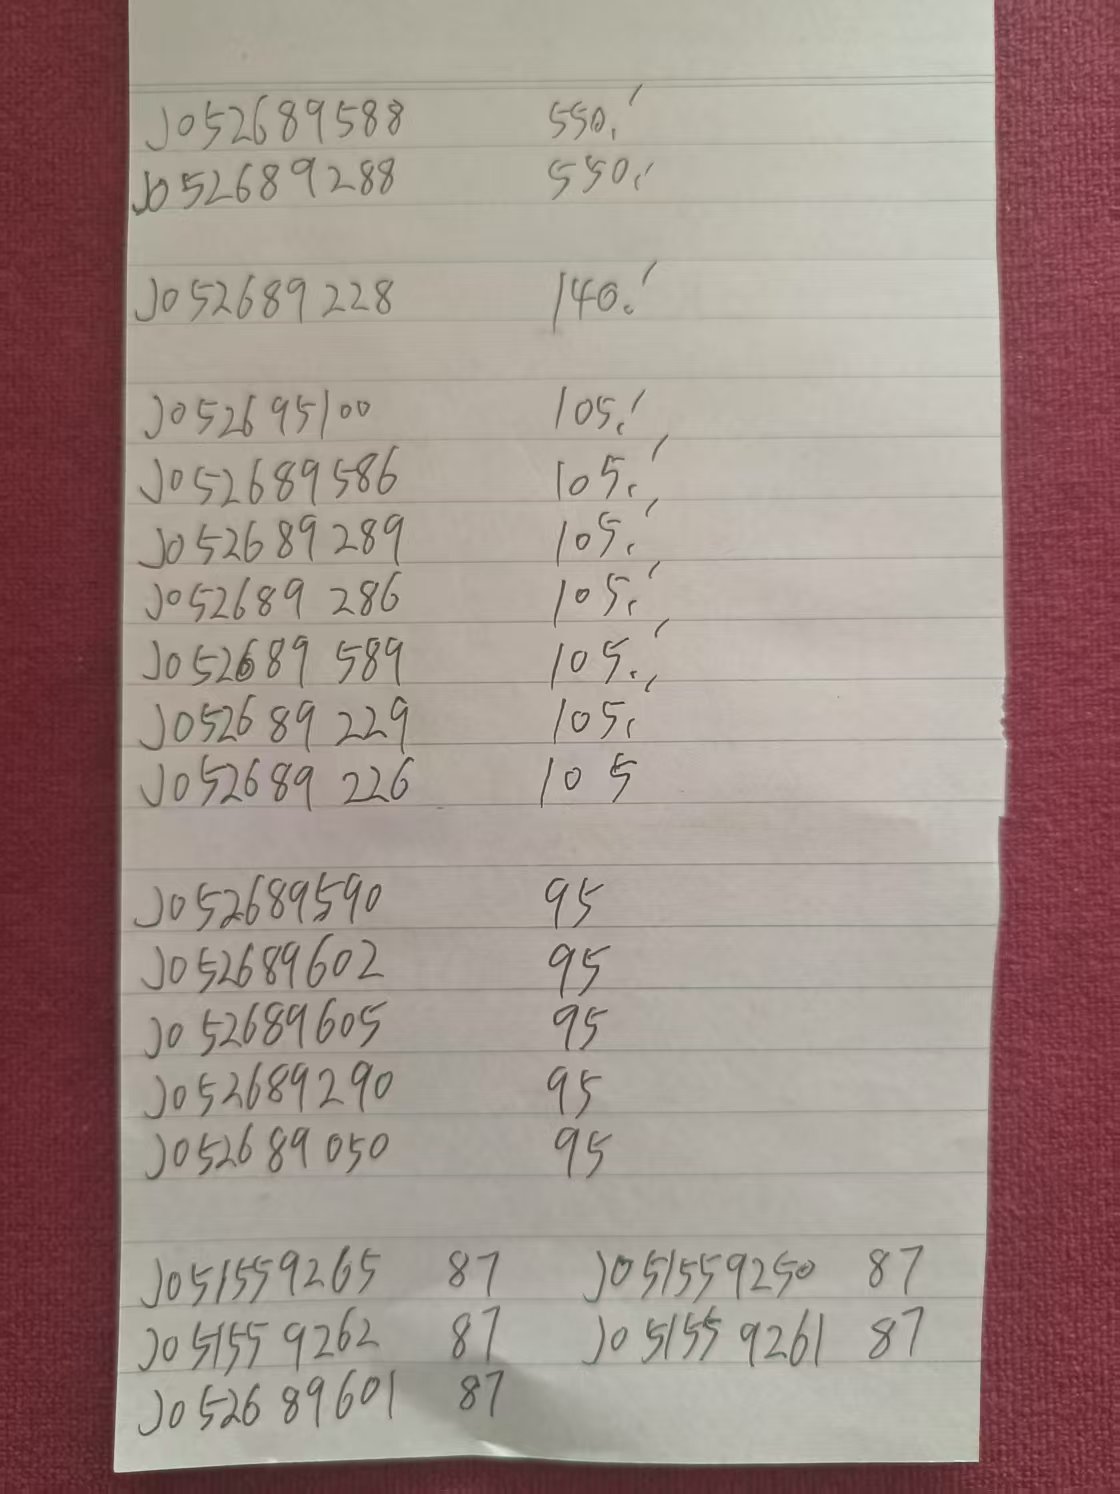 J052689588 550.
J052689288 550.
J052689228 140.
J052695100 105.
J052689586 105.
J052689289 105.
J052689286 105.
J052689589 105.
J052689229 105.
J052689226 105
J052689590 95
J052689602 95
J052689605 95
J052689290 95
J052689050 95
J051559265 87 J051559250 87
J051559262 87 J051559261 87
J052689601 87